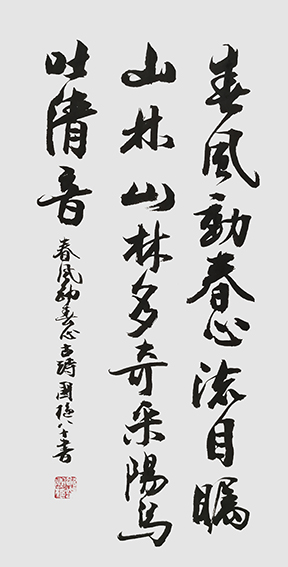 春風動春心流目矚
山林山林多奇采陽鳥
吐清音
春風動春心古詩 國㮣八十書